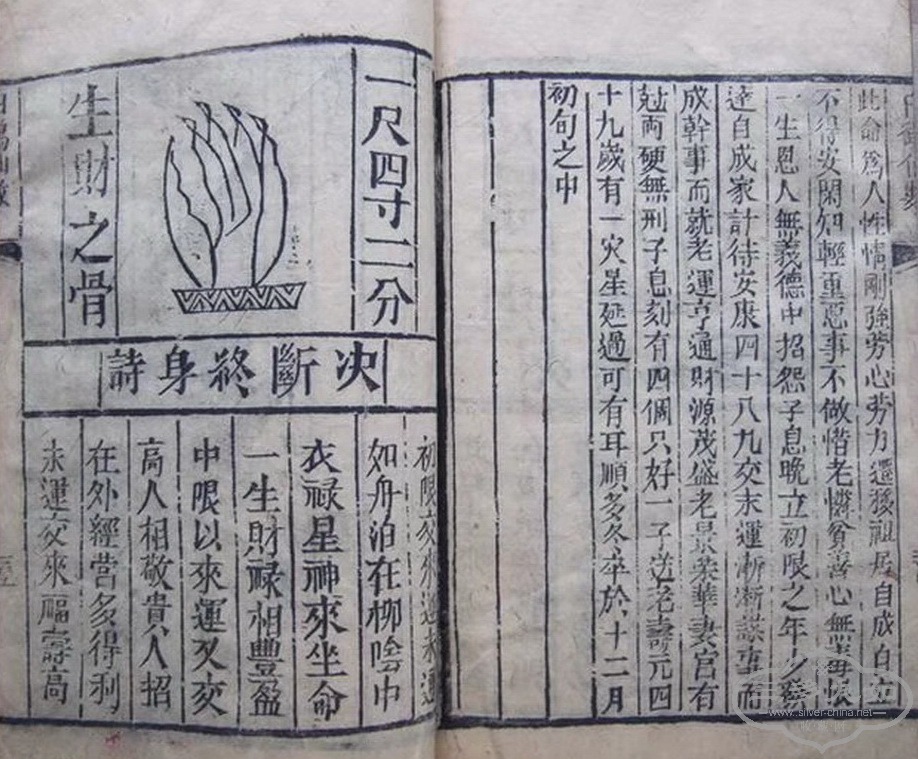 此命爲人性情剛強劳心劳力還發祖居自成自立
不得安閑知輕重惡事不做惜老憐貧善心無毒
一生恩人無義德中招怨子息晚立初限之年
達自成家計待安康四十八九交末運漸漸謀事而
成幹事而就老運亨通財源茂盛老景榮華妻宫有
尅両硬無刑子息刻有四個只好一子送老壽元四
十九歲有一灾星延過可有耳順多冬卒於十二月
初旬之中
一尺四寸二分
生財之骨
决斷終身詩
初限交來運未
如舟泊在柳陰中
衣祿星神來坐命
一生財祿相豐盈
中限以來運又交
高人相敬貴人招
在外經营多得利
末運交來福壽高
www.silver-china.net